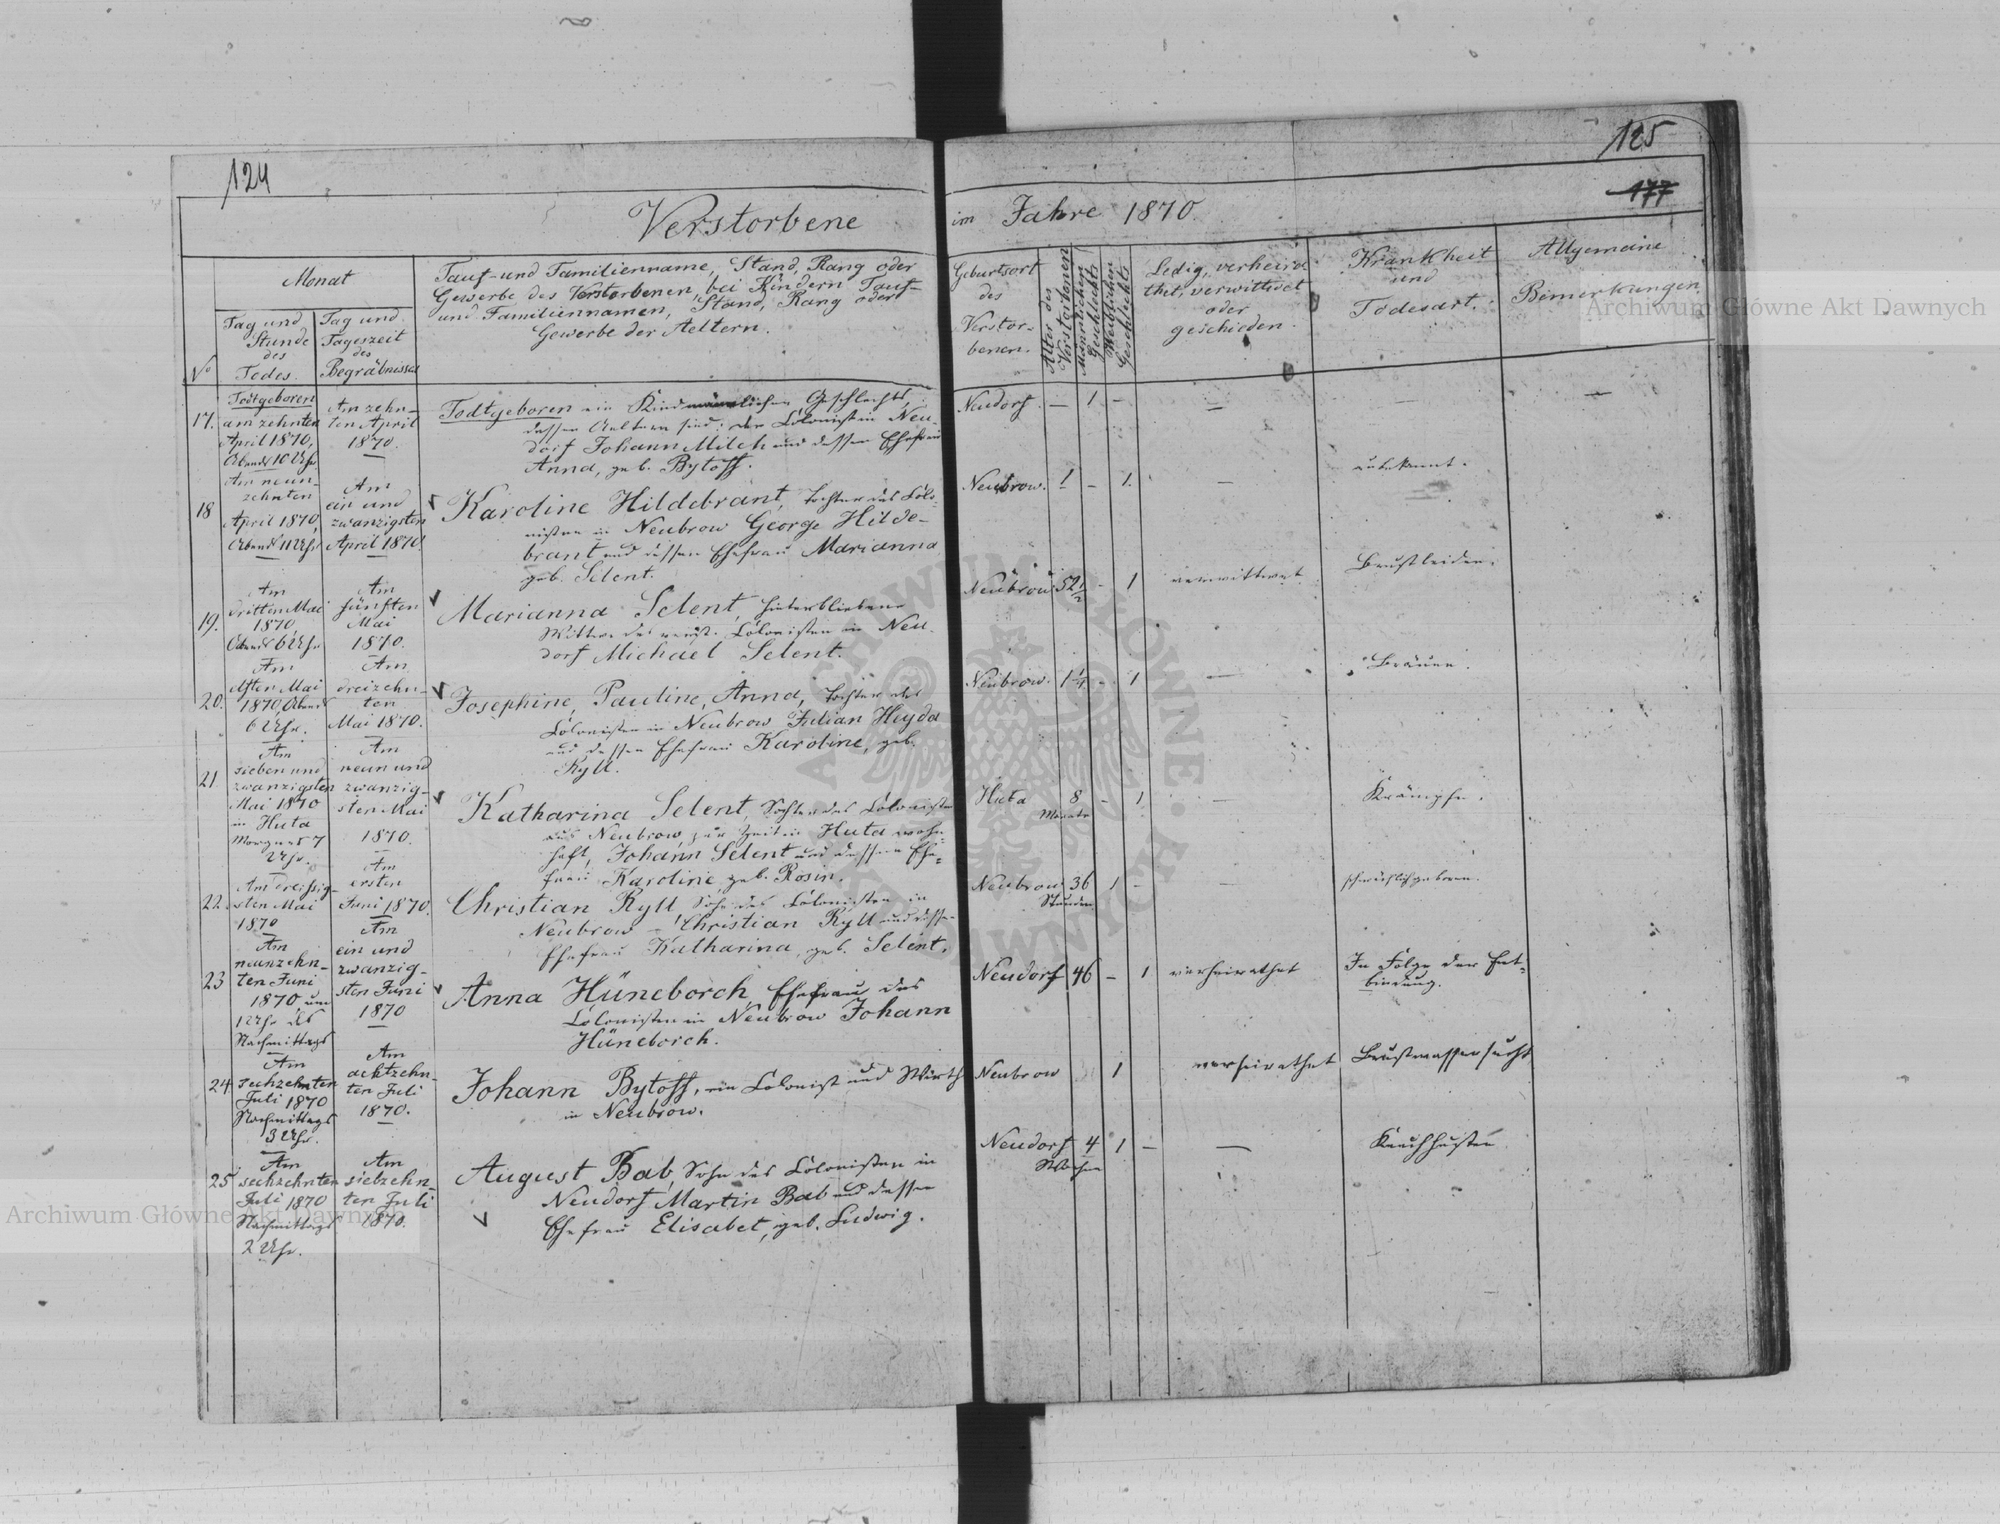 124
125
177
Verstorbene im Jahre 1870.
Monat
Nº
Tag und
Stunde
des
Todes.
Tag und
Tageszeit
des
Begräbnisses
Tauf- und Familienname, Stand, Rang oder
Gewerbe des Verstorbenen, bei Kindern Tauf-
und Familiennamen, Stand, Rang oder
Gewerbe der Aeltern.
Geburtsort
des
Verstor-
benen.
Alter des
Verstorbenen
Männlichen
Geschlechts
Weiblichen
Geschlechts
Ledig, verheira-
thet, verwittwet
oder
geschieden.
Krankheit
und
Todesart.
Allgemeine
Bemerkungen
17.
Todtgeboren
am zehnten
April 1870,
Abends 10 Uhr
Am zehn-
ten April
1870.
Todtgeboren ein Kind männlichen Geschlechts,
dessen Aeltern sind: der Colonist in Neu-
dorf Johann Milch und dessen Ehefrau
Anna, geb. Bytoff.
Neudorf. — 1 — — — —
18
Am neun-
zehnten
April 1870,
Abends 11 Uhr
Am
ein und
zwanzigsten
April 1870.
Karoline Hildebrant, Tochter des Colo-
nisten in Neubrow George Hilde-
brant und dessen Ehefrau Marianna
geb. Selent.
Neubrow. 1 – 1. — unbekannt.
19.
Am
dritten Mai
1870,
Abends 6 Uhr
Am
fünften
Mai
1870.
Marianna Selent, hinterbliebene
Wittwe des verst. Colonisten in Neu-
dorf Michael Selent.
Neubrow 52 1/2 - 1 verwittwet Brustleiden.
20.
Am
elften Mai
1870 Abends
6 Uhr.
Am
dreizehn-
ten
Mai 1870.
Josephine, Pauline, Anna, Tochter des
Colonisten in Neubrow Julian Heyda
und dessen Ehefrau Karoline, geb.
Ryll.
Neubrow. 1 1/4 - 1 — Bräune.
21
Am
sieben und
zwanzigsten
Mai 1870
in Huta
Morgens 7
Uhr.
Am
neun und
zwanzig-
sten Mai
1870.
Katharina Selent, Tochter des Colonisten
aus Neubrow, zur Zeit in Huta wohn-
haft, Johann Selent und dessen Ehe-
frau Karoline, geb. Rosin.
Huta 8 - 1 — Krämpfe.
Monate
22.
Am dreissig-
sten Mai
1870
Am
ersten
Juni 1870.
Christian Ryll, Sohn des Colonisten in
Neubrow – Christian Ryll und dessen
Ehefrau Katharina, geb. Selent.
Neubrow 36 1 – — schwächlich geboren.
Stunden
23
Am
neunzehn-
ten Juni
1870, um
1 Uhr des
Nachmittags
Am
ein und
zwanzig-
sten Juni
1870
Anna Hüneborch, Ehefrau des
Colonisten in Neubrow Johann
Hüneborch.
Neudorf 46 – 1 verheirathet In Folge der Ent-
bindung.
24
Am
sechzehnten
Juli 1870
Nachmittags
3 Uhr.
Am
achtzehn-
ten Juli
1870.
Johann Bytoff, ein Colonist und Wirth
in Neubrow.
Neubrow 1 verheirathet Brustwassersucht
25
Am
sechzehnten
Juli 1870
Nachmittags
2 Uhr.
Am
siebzehn-
ten Juli
1870.
August Bab, Sohn des Colonisten in
Neudorf Martin Bab und dessen
Ehefrau Elisabet, geb. Ludwig.
Neudorf 4 1 — — Keuchhusten
Wochen
Archiwum Główne Akt Dawnych
Archiwum Główne Akt Dawnych
ARCHIWUM GŁÓWNE AKT DAWNYCH